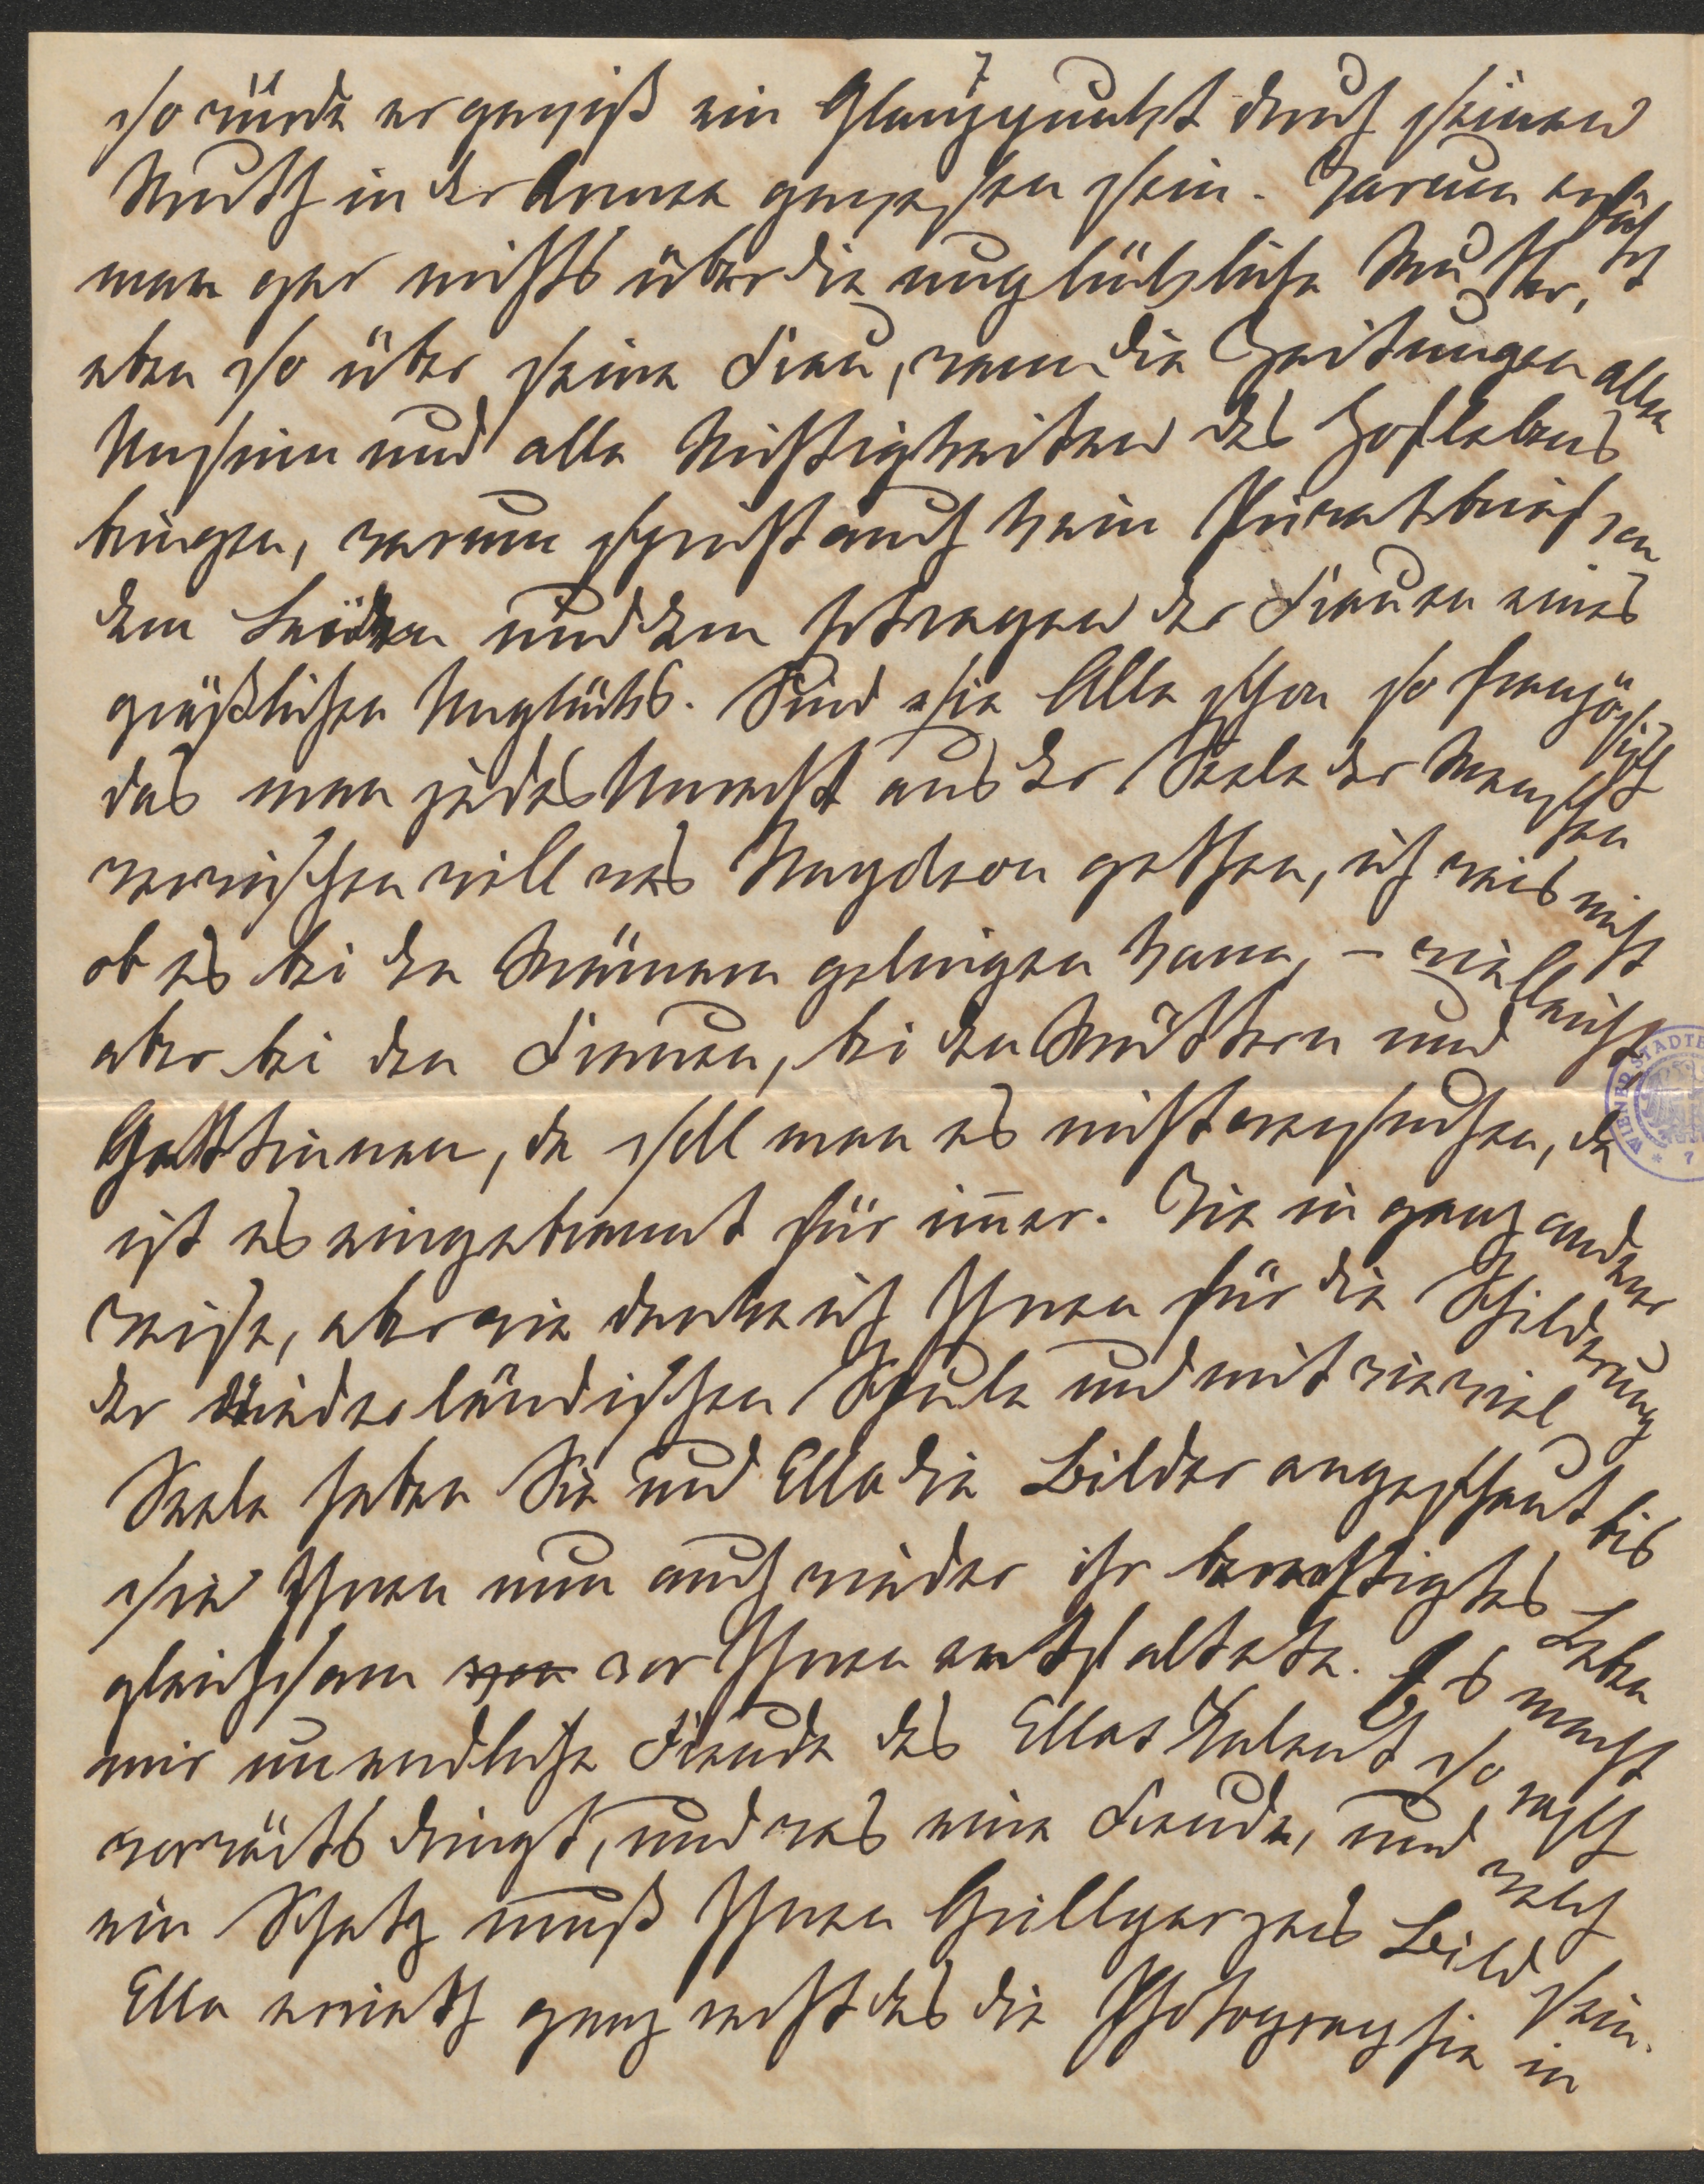 so würde er gewiß ein Glanzpunkt durch seinen
Muth in der Armee gewesen sein. Warum erfährt
man gar nichts über die unglückliche Mutter,
eben so über seine Frau, wenn die Zeitungen allen
Unsinn und alle Nichtigkeiten des Hoflebens
bringen, warum spricht auch kein Privatbrief von
dem Leiden und dem Ertragen der Frauen eines
gräßlichen Unglücks. Sind sie Alle schon so französisch
das man jedes Unrecht aus der Seele der Menschen
verwischen will was Napoleon gethan, ich weis nicht
ob es bei den Männern gelingen kann, – vielleicht
aber bei den Frauen, bei den Müttern und
Gattinnen, da soll man es nicht versuchen, da
ist es eingebrannt für im̅er. Wie in ganz anderer
weise, aber wie danke ich Ihnen für die Schilderung
der niederländischen Schule und mit wie viel
Seele haben Sie und Ella die Bilder angeschaut bis
sie Ihnen nun auch wieder ihr berechtigtes Leben
gleichsam von vor Ihnen entfaltete. Es macht
mir unendliche Freude das Ellas Talent so rasch
vorwärts dringt, und was eine Freude, und welch
ein Schatz muß Ihnen Grillparzers Bild sein.
Ella errieth ganz recht das die Photographie in